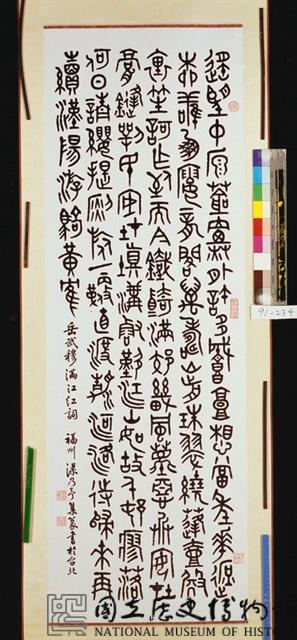 遙望中原荒煙外許多城郭想當年花遮
柳護鳳樓龍閣萬歲山前珠翠繞蓬壺殿
裏笙歌作到而今鐵騎滿郊畿風塵惡兵安在
膏鋒鍔民安在填溝壑歎江山如故千村寥落
何日請纓提銳旅一鞭直渡清河洛待歸來再
續漢陽游騎黃鶴 岳武穆滿江紅詞 福州梁乃予集篆書於台北
91-234
國立歷史博物
NATIONAL MUSEUM OF HIST